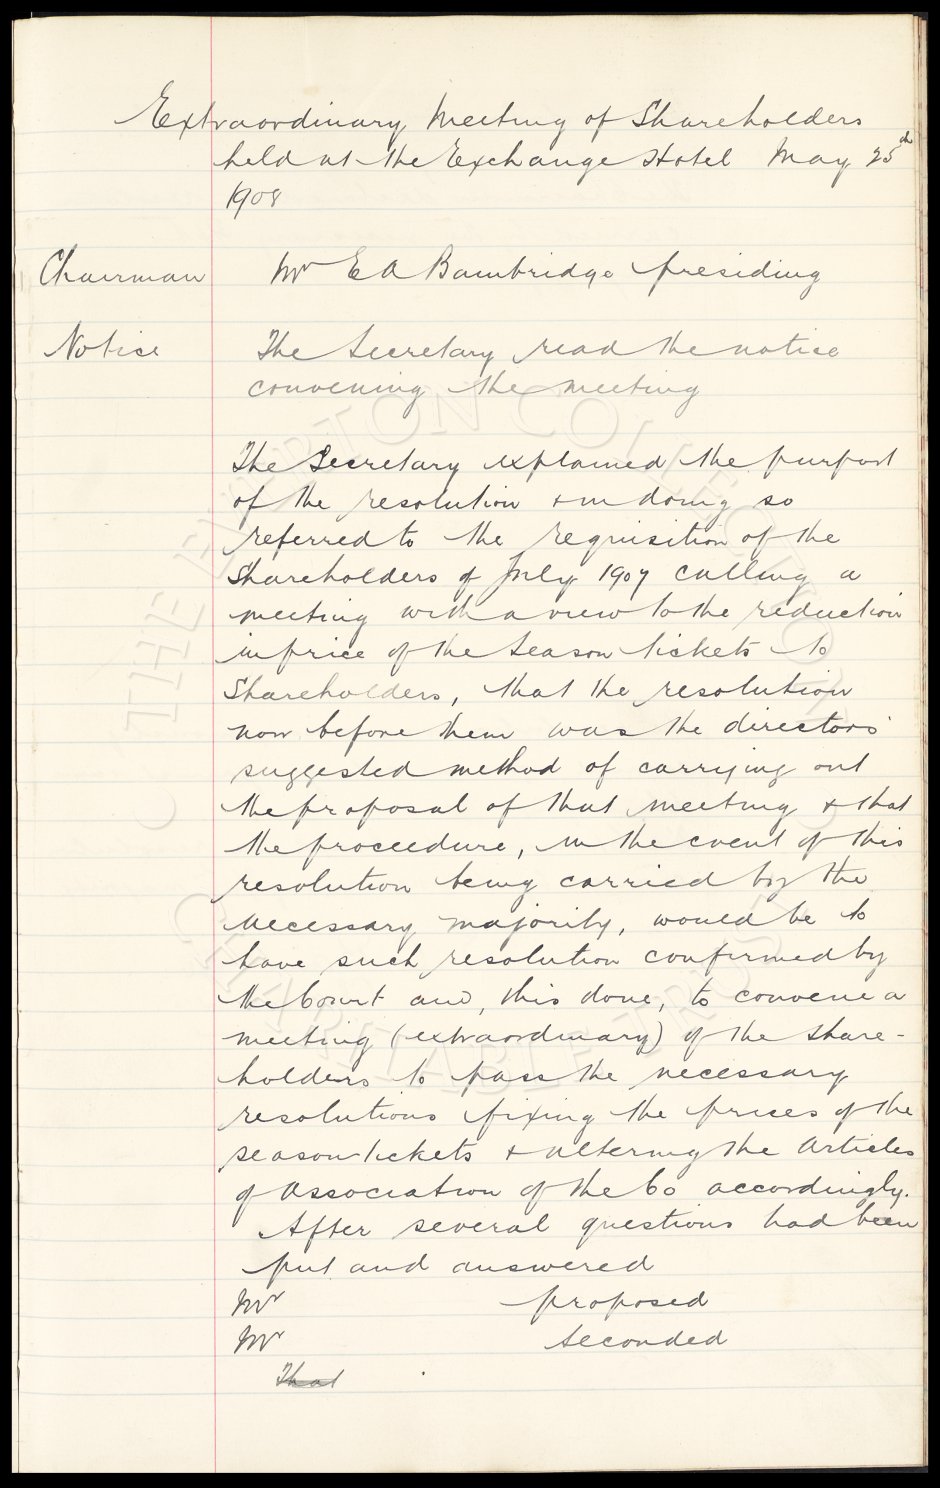 Extraordinary Meeting of Shareholders
held at the Exchange Hotel May 25th
1908
Chairman Mr E A Bainbridge presiding
Notice The Secretary read the notice
convening the meeting
The Secretary explained the purport
of the resolution & in doing so
referred to the requisition of the
Shareholders of July 1907 calling a
meeting with a view to the reduction
in price of the Season tickets to
Shareholders, that the resolution
now before them was the directors'
suggested method of carrying out
the proposal of that meeting & that
the proceedure, in the event of this
resolution being carried by the
necessary majority, would be to
have such resolution confirmed by
the Court and, this done, to convene a
meeting (extraordinary) of the share-
holders to pass the necessary
resolutions fixing the prices of the
season tickets & altering the Articles
of Association of the Co accordingly.
After several questions had been
put and answered
Mr proposed
Mr seconded
That
THE EVERTON COLLECTION
CHARITABLE TRUST